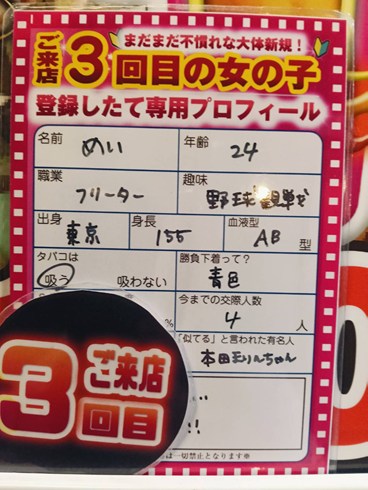 まだまだ不慣れな大体新規！
ご来店3回目の女の子
登録したて専用プロフィール
名前 めい 年齢 24
職業 フリーター 趣味 野球観戦
出身 東京 身長 155 血液型 AB型
タバコは 勝負下着って？
吸う 吸わない 青色
今までの交際人数
% 4人
「似てる」と言われた有名人
本田まりんちゃん
ご来店
3回目
!!
は一切禁止となります※